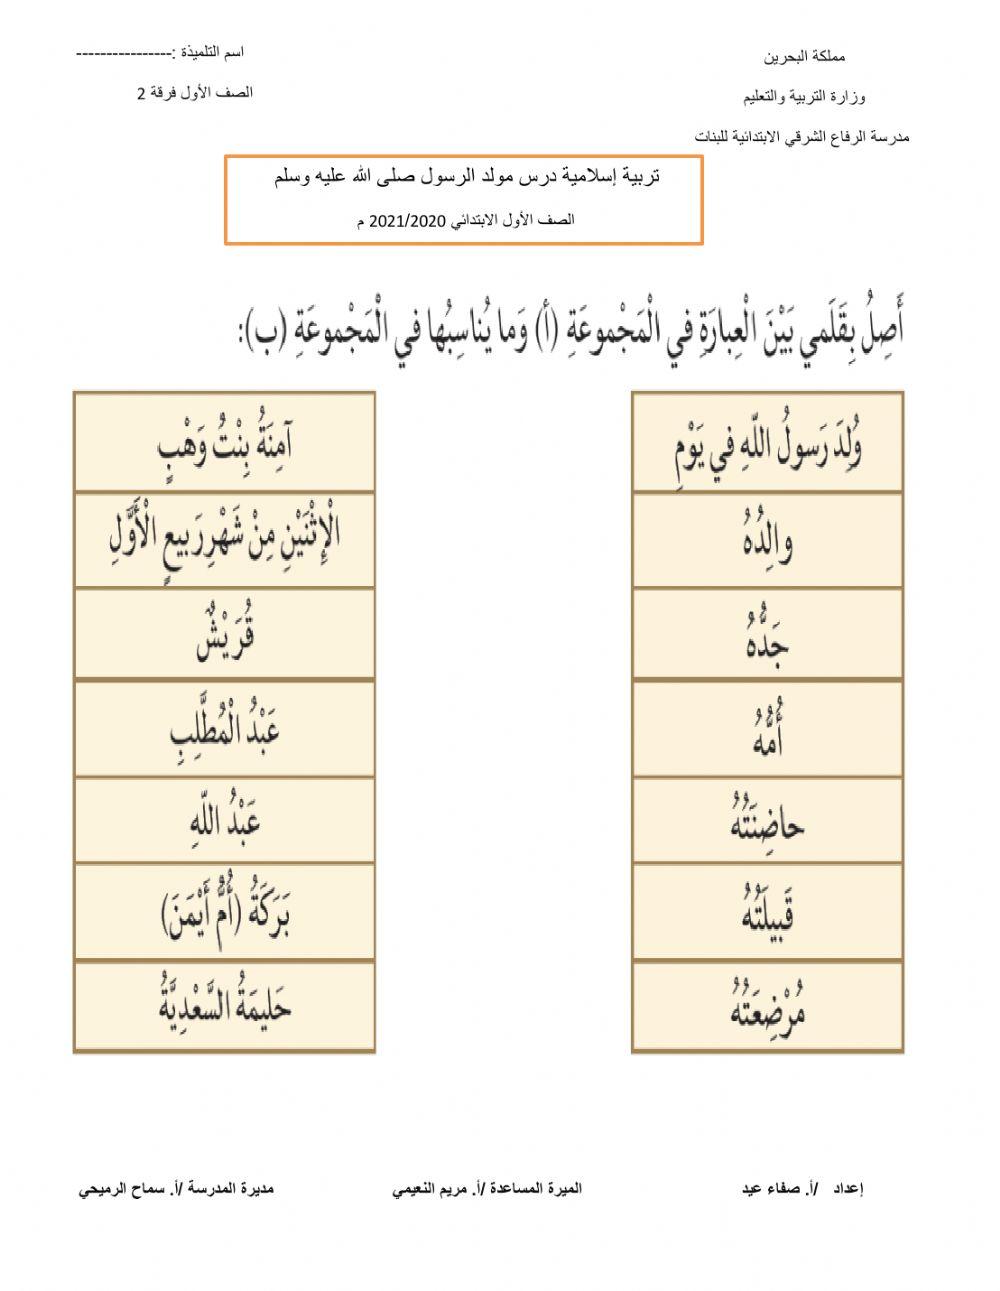 مملكة البحرين
اسم التلميذة :----------------
وزارة التربية والتعليم
الصف الأول فرقة 2
مدرسة الرفاع الشرقي الابتدائية للبنات
تربية إسلامية درس مولد الرسول صلى الله عليه وسلم
الصف الأول الابتدائي 2021/2020 م
أَصِلُ بِقَلَمي بَيْنَ الْعِبارَةِ في الْمَجْموعَةِ (أ) وَما يُناسِبُها في الْمَجْموعَةِ (ب):
وُلِدَ رَسولُ اللّهِ في يَوْمِ
آمِنَةُ بِنْتُ وَهْبٍ
والِدُهُ
الْإِثْنَيْنِ مِنْ شَهْرِ رَبيعٍ الْأَوَّلِ
جَدُّهُ
قُرَيْشٌ
أُمُّهُ
عَبْدُ الْمُطَّلِبِ
حاضِنَتُهُ
عَبْدُ اللّهِ
قَبيلَتُهُ
بَرَكَةُ (أُمُّ أَيْمَنَ)
مُرْضِعَتُهُ
حَليمَةُ السَّعْدِيَّةُ
إعداد /أ. صفاء عيد
الميرة المساعدة /أ. مريم النعيمي
مديرة المدرسة /أ. سماح الرميحي